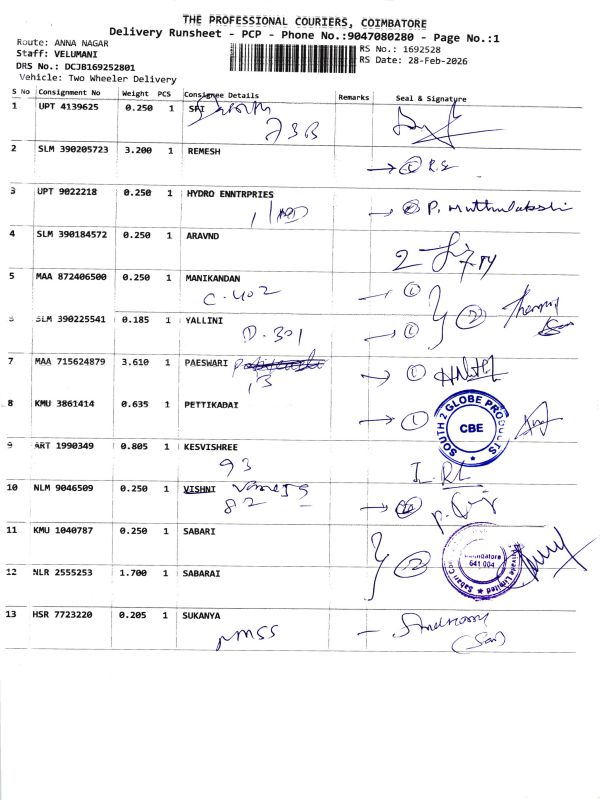 THE PROFESSIONAL COURIERS, COIMBATORE
Delivery Runsheet - PCP - Phone No.:9047080280 - Page No.:1
Route: ANNA NAGAR
RS No.: 1692528
Staff: VELUMANI
RS Date: 28-Feb-2026
DRS No.: DCJB169252801
Vehicle: Two Wheeler Delivery
S No Consignment No Weight PCS Consignee Details Remarks Seal & Signature
1 UPT 4139625 0.250 1 SRI
2 SLM 390205723 3.200 1 REMESH
3 UPT 9022218 0.250 1 HYDRO ENNTRPRIES
P. Muthulakshmi
4 SLM 390184572 0.250 1 ARAVND
5 MAA 872406500 0.250 1 MANIKANDAN
C-402
6 SLM 390225541 0.185 1 YALLINI
D-301
7 MAA 715624879 3.610 1 PAESWARI
13
8 KMU 3861414 0.635 1 PETTIKADAI
SOUTH 2 GLOBE PRODUCTS
CBE
9 ART 1990349 0.805 1 KESVISHREE
93
10 NLM 9046509 0.250 1 VISHNI
82
11 KMU 1040787 0.250 1 SABARI
Coimbatore
641 004
12 NLR 2555253 1.700 1 SABARAI
13 HSR 7723220 0.205 1 SUKANYA